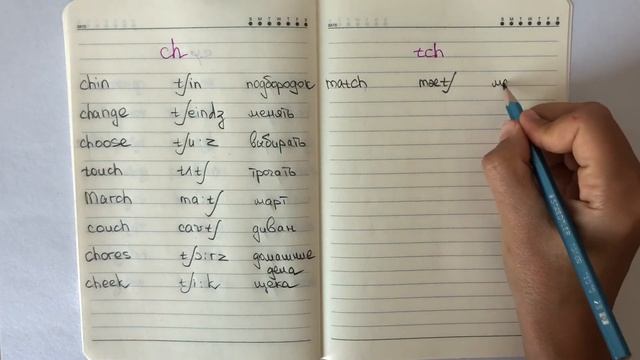 DATE S M T W T F S
DATE S M T W T F S
ch
chin tʃin подбородок
change tʃeindʒ менять
choose tʃu:z вибирать
touch tʌtʃ трогать
March ma:tʃ март
couch caʊtʃ диван
chores tʃɔ:rz домашние
дела
cheek tʃi:k щека
tch
match mætʃ